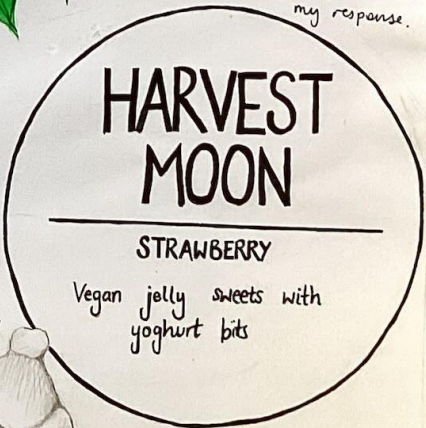 my response.
HARVEST
MOON
STRAWBERRY
Vegan jelly sweets with
yoghurt bits